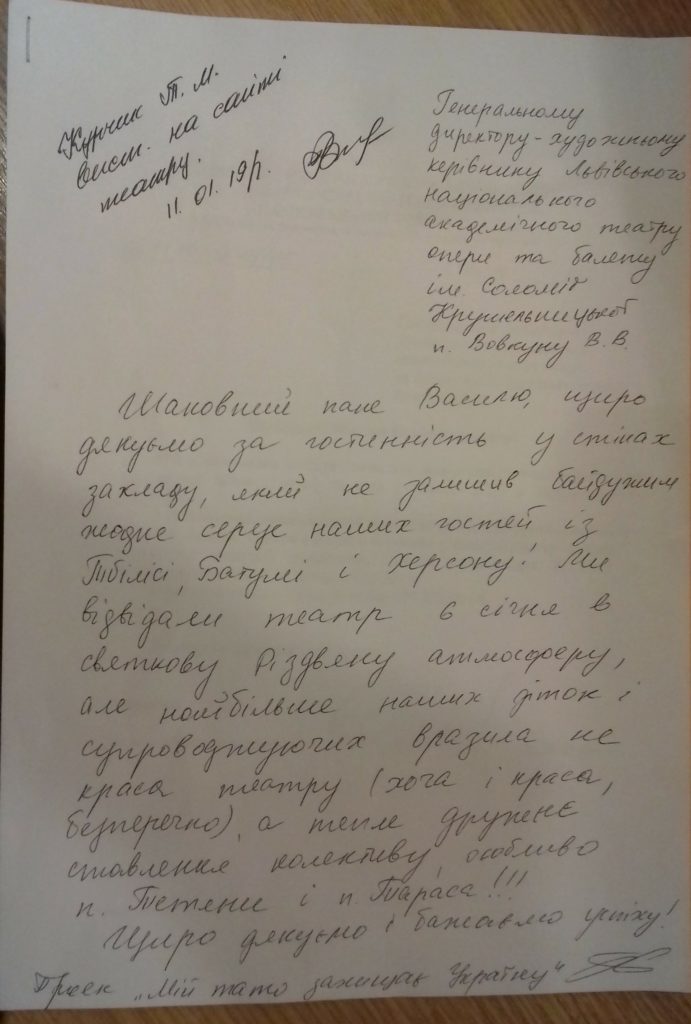 Курчик Т. М.
Вист. на сайті
театру.
11. 01. 19р.
Генеральному
директору-художньому
керівнику Львівського
національного
академічного театру
опери та балету
ім. Соломії
Крушельницької
п. Вовкуну В.В.
Шановний пане Василю, щиро
дякуємо за гостинність у стінах
закладу, який не залишив байдужим
жодне серце наших гостей із
Тбілісі, Батумі і Херсону! Ми
відвідали театр 6 січня в
святкову Різдвяну атмосферу,
але найбільше наших діток і
супроводжуючих вразила не
краса театру (хоча і краса,
безперечно), а тепле дружнє
ставлення колективу, особливо
п. Тетяни і п. Тараса!!!
Щиро дякуємо і бажаємо успіху!
Проєк „Мій тато захищає Україну"